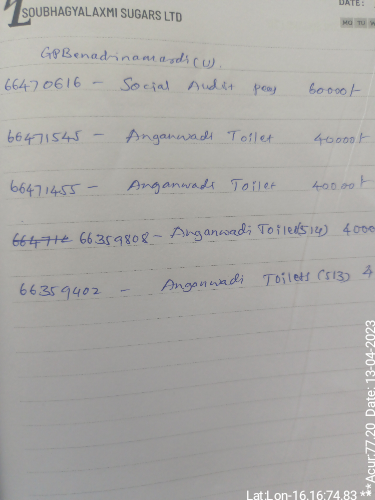 SOUBHAGYALAXMI SUGARS LTD
DATE:
MO TU
GPBenadinamardi (U).
66470616 - Social Audit pay 60000/-
66471545 - Anganwadi Toilet 40000/-
66471455 - Anganwadi Toilet 40000/-
66359808 - Anganwadi Toilets(514) 4000
66359402 - Anganwadi Toilets (513) 4
Lat:Lon-16,16:74.83 ***Acur:77.20 Date: 13-04-2023